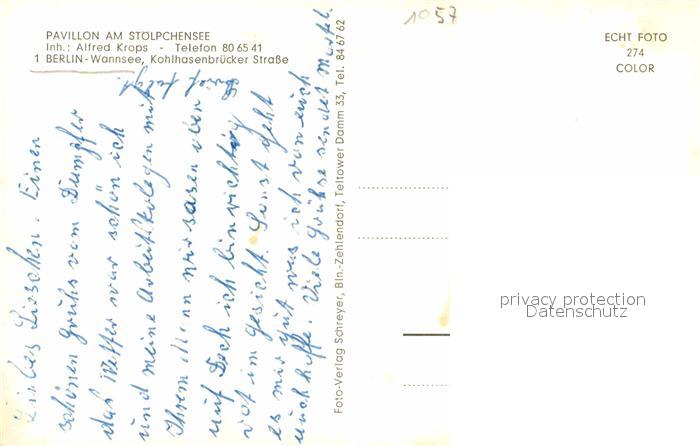 PAVILLON AM STÖLPCHENSEE
Inh.: Alfred Krops - Telefon 80 65 41
1 BERLIN-Wannsee, Kohlhasenbrücker Straße
1957
ECHT FOTO
274
COLOR
Liebes Lieschen. Einen
schönen Gruhs vom Dampfer
das Wetter war schön ich
und meine Arbeitskolegen mit
Ihrem Mann wir sasen oben
auf Dech ich bin richtig
rot im gesicht. Sonst geht
es mir gut was ich von euch
auch hoffe. Viele Grühse sendet
Foto-Verlag Schreyer, Bln.-Zehlendorf, Teltower Damm 33, Tel. 84 67 62
privacy protection
Datenschutz